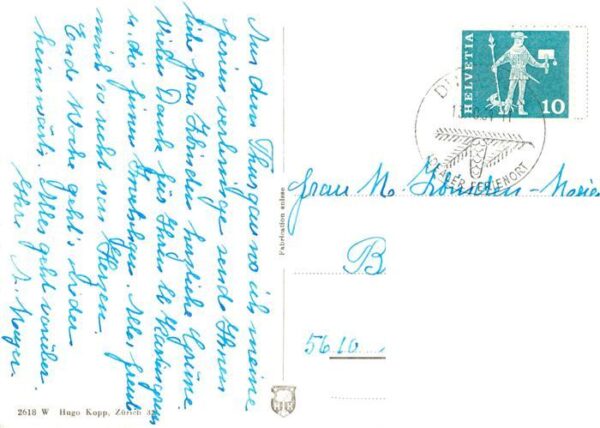 Aus dem Thurgau wo ich meine
Ferien verbringe sende Ihnen
liebe Frau Zbinden herzliche Grüsse.
Vielen Dank für Ihren lb
u. die feinen Alles freut
mich so recht von Herzen.
Ende Woche geht's wieder
heimwärts. Alles geht vorüber.
Ihre
S. Meyer.
2618 W Hugo Kopp, Zürich
Fabrication suisse
HELVETIA
10
FERIENORT
Frau M. Zbinden-
B
5610